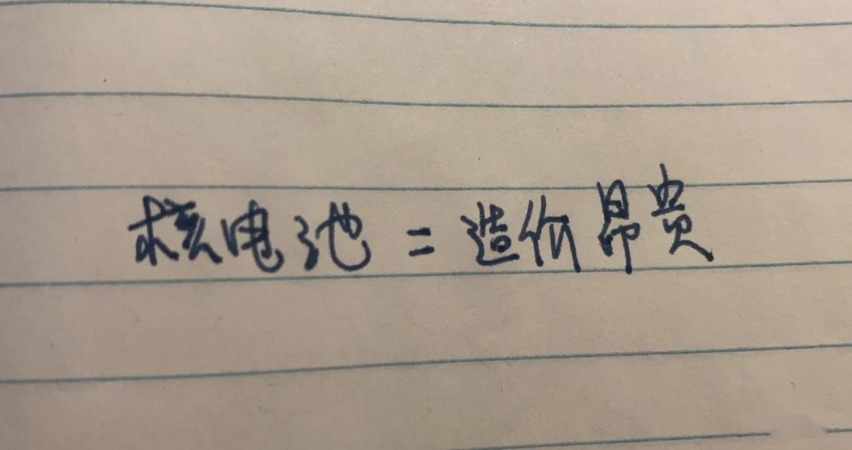 核电池=造价昂贵